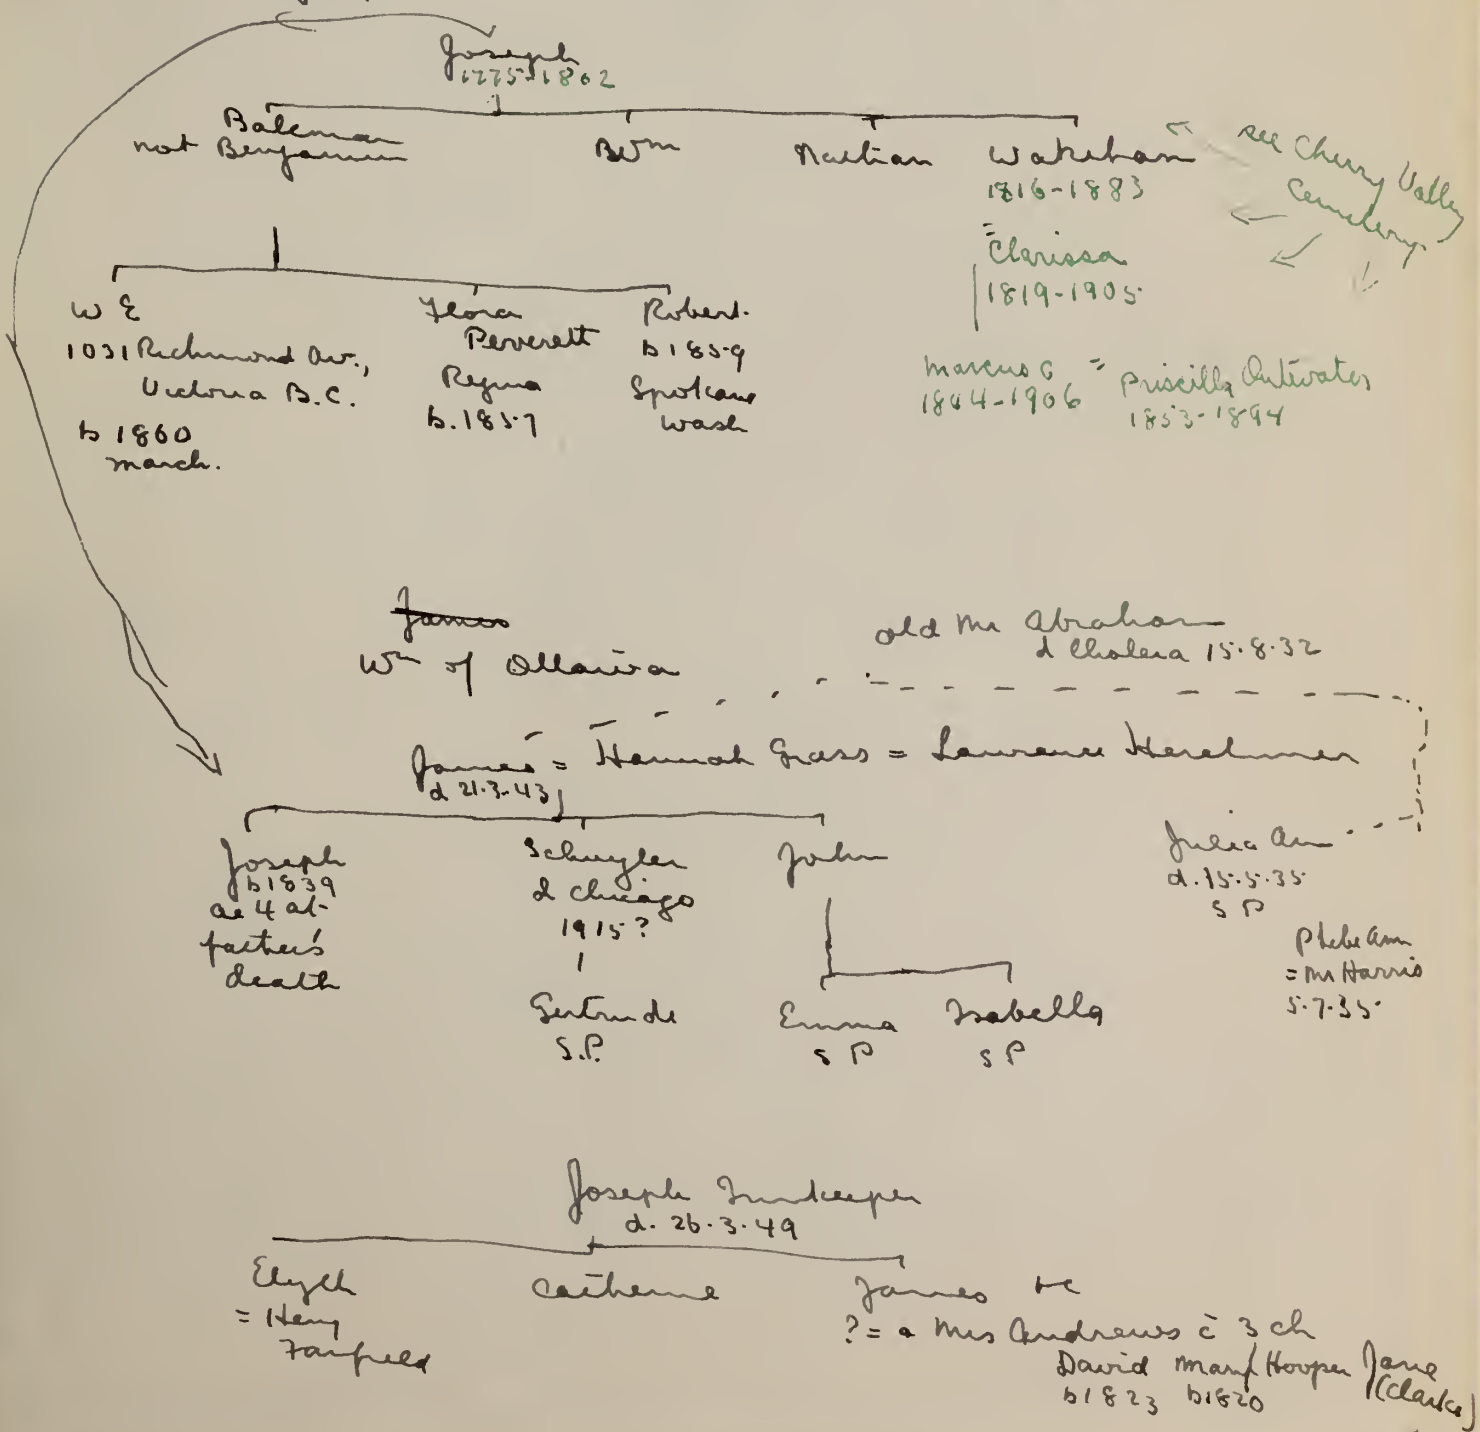 Joseph
1775-1862
Bateman
not Benjamin
Wm
Nathan
Wakeham
1816-1883
=
Clarissa
1819-1905
see Cherry Valley
Cemetery
W E
1031 Richmond Av.,
Victoria B.C.
b 1860
march.
Flora
Peverett
Regina
b. 1857
Robert
b 1859
Spokane
Wash
Marcus G = Priscilla
1844-1906
1853-1894
James
Wm of Ottawa
old Mr Abraham
d Cholera 15.8.32
James = Hannah Grass = Laurence Herchmer
d 21.3.43
Joseph
b 1839
ae 4 at
father's
death
Schuyler
d Chicago
1915?
Gertrude
S.P.
John
Emma
S P
Isabella
S P
Julia Ann
d. 15.5.35
S P
Phebe Ann
= Mr Harris
5.7.35
Joseph Innkeeper
d. 26.3.49
Elizth
= Henry
Fairfield
Catherine
James
? = a Mrs Andrews c̄ 3 ch
David Mary Hooper Jane
b 1823 b 1820 (Clarke)